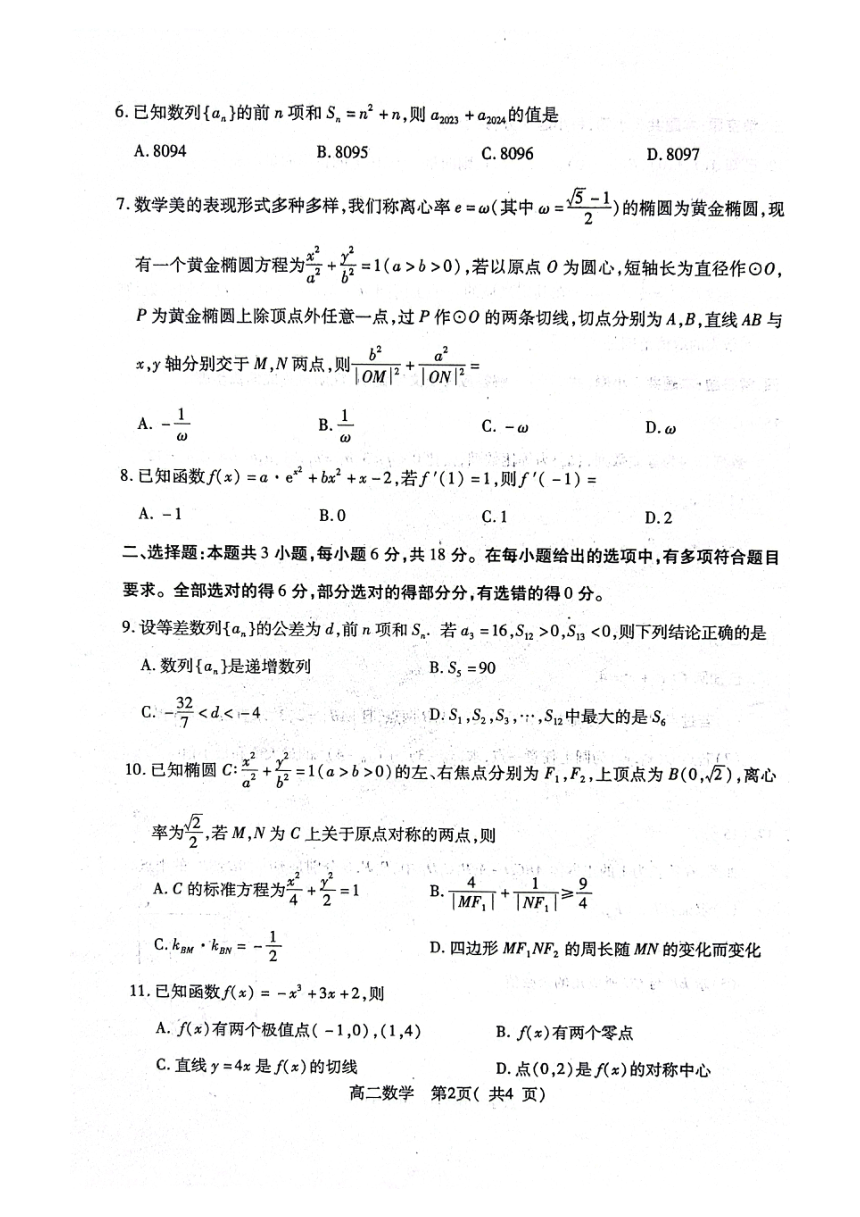 6.已知数列{aₙ}的前 n 项和 Sₙ = n² + n,则 a₂₀₂₃ + a₂₀₂₄的值是
A. 8094 B. 8095 C. 8096 D. 8097
7.数学美的表现形式多种多样,我们称离心率 e = ω(其中 ω = (√5 - 1)/2)的椭圆为黄金椭圆,现
有一个黄金椭圆方程为x²/a² + y²/b² = 1(a > b > 0),若以原点 O 为圆心,短轴长为直径作⊙O,
P 为黄金椭圆上除顶点外任意一点,过 P 作⊙O 的两条切线,切点分别为 A,B,直线 AB 与
x,y 轴分别交于 M,N 两点,则b²/|OM|² + a²/|ON|² =
A. -1/ω B. 1/ω C. -ω D. ω
8.已知函数f(x) = a · e^(x²) + bx² + x - 2,若f ′(1) = 1,则f ′( -1) =
A. -1 B. 0 C. 1 D. 2
二、选择题:本题共 3 小题,每小题 6 分,共 18 分。在每小题给出的选项中,有多项符合题目
要求。全部选对的得 6 分,部分选对的得部分分,有选错的得 0 分。
9.设等差数列{aₙ}的公差为 d,前 n 项和 Sₙ. 若 a₃ = 16,S₁₂ > 0,S₁₃ < 0,则下列结论正确的是
A. 数列{aₙ}是递增数列 B. S₅ = 90
C. -32/7 < d < -4 D. S₁,S₂,S₃,⋯,S₁₂中最大的是 S₆
10.已知椭圆 C:x²/a² + y²/b² = 1(a > b > 0)的左、右焦点分别为 F₁,F₂,上顶点为 B(0,√2),离心
率为√2/2,若 M,N 为 C 上关于原点对称的两点,则
A. C 的标准方程为x²/4 + y²/2 = 1 B. 4/|MF₁| + 1/|NF₁| ≥ 9/4
C. k_BM · k_BN = -1/2 D. 四边形 MF₁NF₂ 的周长随 MN 的变化而变化
11.已知函数f(x) = -x³ + 3x + 2,则
A. f(x)有两个极值点( -1,0),(1,4) B. f(x)有两个零点
C. 直线 y = 4x 是 f(x)的切线 D. 点(0,2)是 f(x)的对称中心
高二数学 第2页( 共4 页)